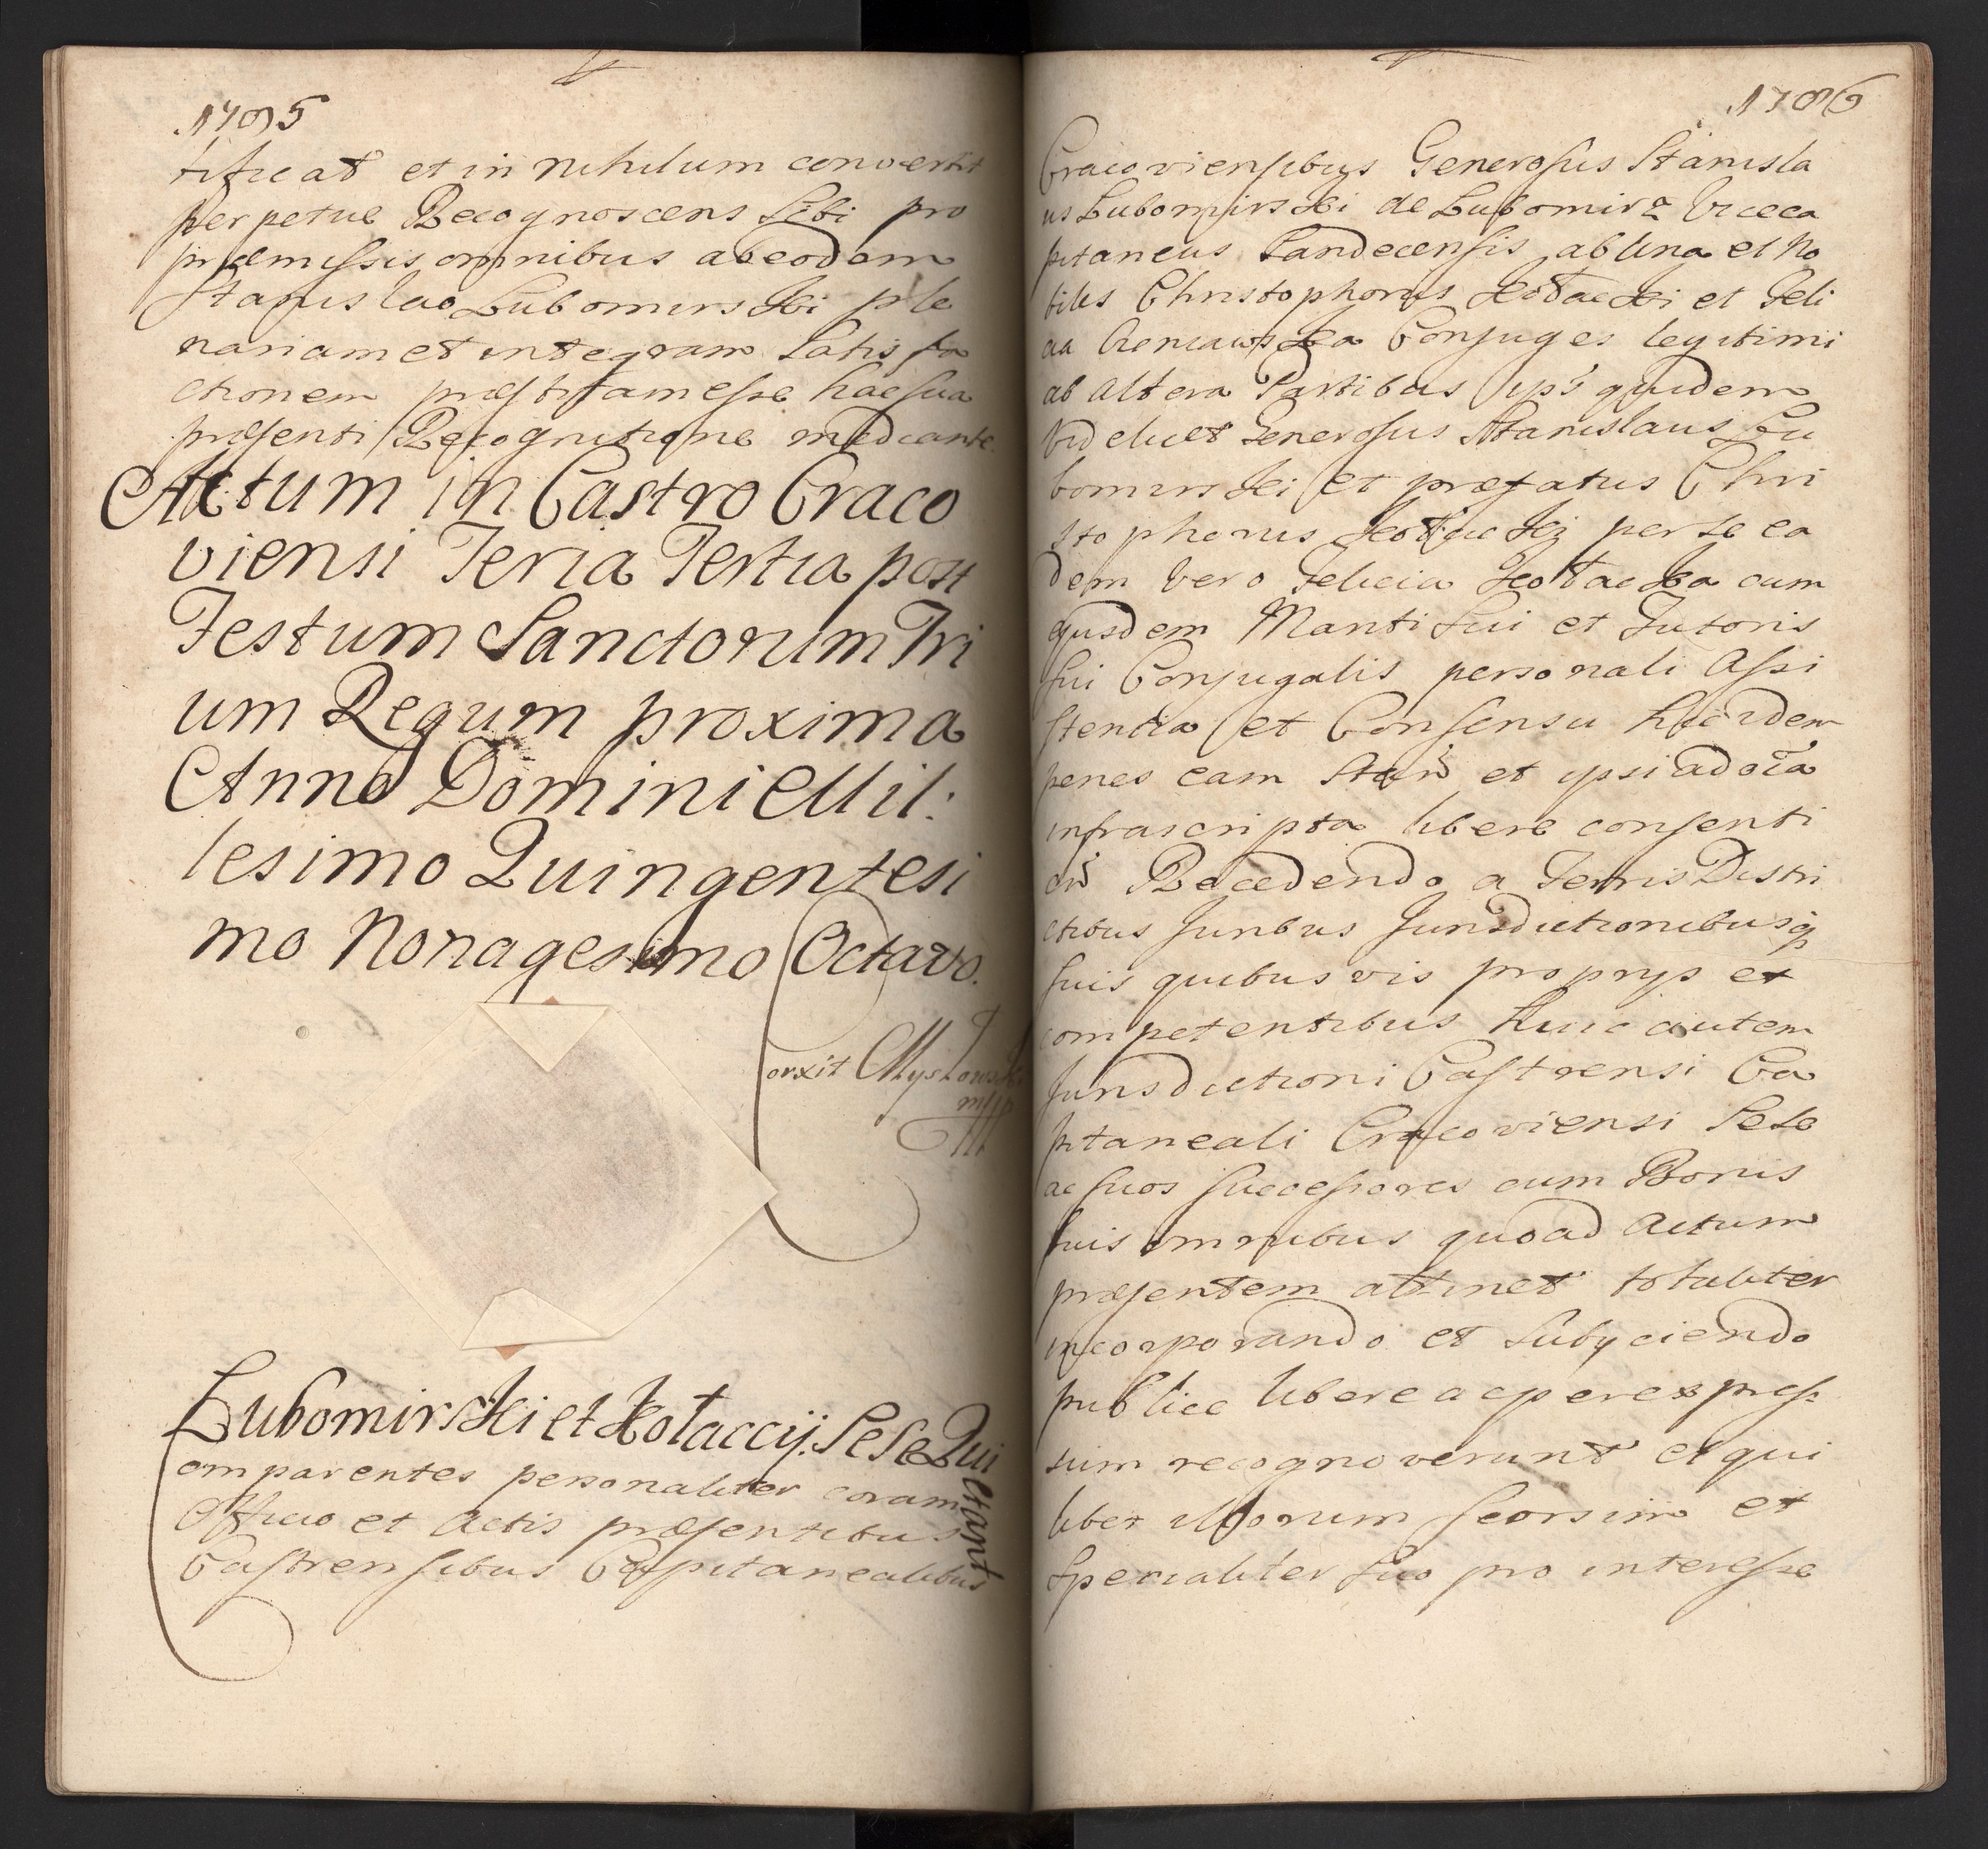 1785
tificat et in nihilum convertit
perpetue Recognoscens Sibi pro
præmissis omnibus ab eodem
Stanislao Lubomirski ple
nariam et integram Satisfa
ctionem præstitam esse hac sua
præsenti Recognitione mediante
Actum in Castro Craco
viensi Feria Tertia post
Festum Sanctorum Tri
um Regum proxima
Anno Domini Mil:
lesimo Quingentesi
mo Nonagesimo Octavo.
orxit Myslowski
mp
Lubomirski et Kotaccÿ. Sese Qui
etant
omparentes personaliter coram
Officio et Actis præsentibus
Castrensibus Capitanealibus
1786
Cracoviensibus Generosus Stanisla
us Lubomirski de Lubomirz Viceca
pitaneus Sandecensis ab una et No
biles Christophorus Kotacki et Feli
Conjuges legitimi
ab altera Partibus ips̃ quidem
videlicet Generosus Stanislaus Lu
bomirski et præfatus Chri
stophorus Kotacki per se ea
dem vero Felicia Kotacka cum
ejusdem Mariti sui et Tutoris
sui Conjugalis personali Assi
stentia et Consensu hic idem
penes eam Stañ et ipsi ad oĩa
infrascripta libere consenti
eñ Recedendo a Terris Distri
ctibus Juribus Jurisdictionibusq
suis quibusvis proprys et
competentibus huic autem
Jurisdictioni Castrensi Ca
pitaneali Cracoviensi Sese
ac suos successores cum Bonis
suis omnibus quoad Actum
præsentem attinet totaliter
incorporando et subyciendo
publice libere ac per expres:
sum recognoverunt et qui
libet illorum seorsim et
specialiter suo pro interesse